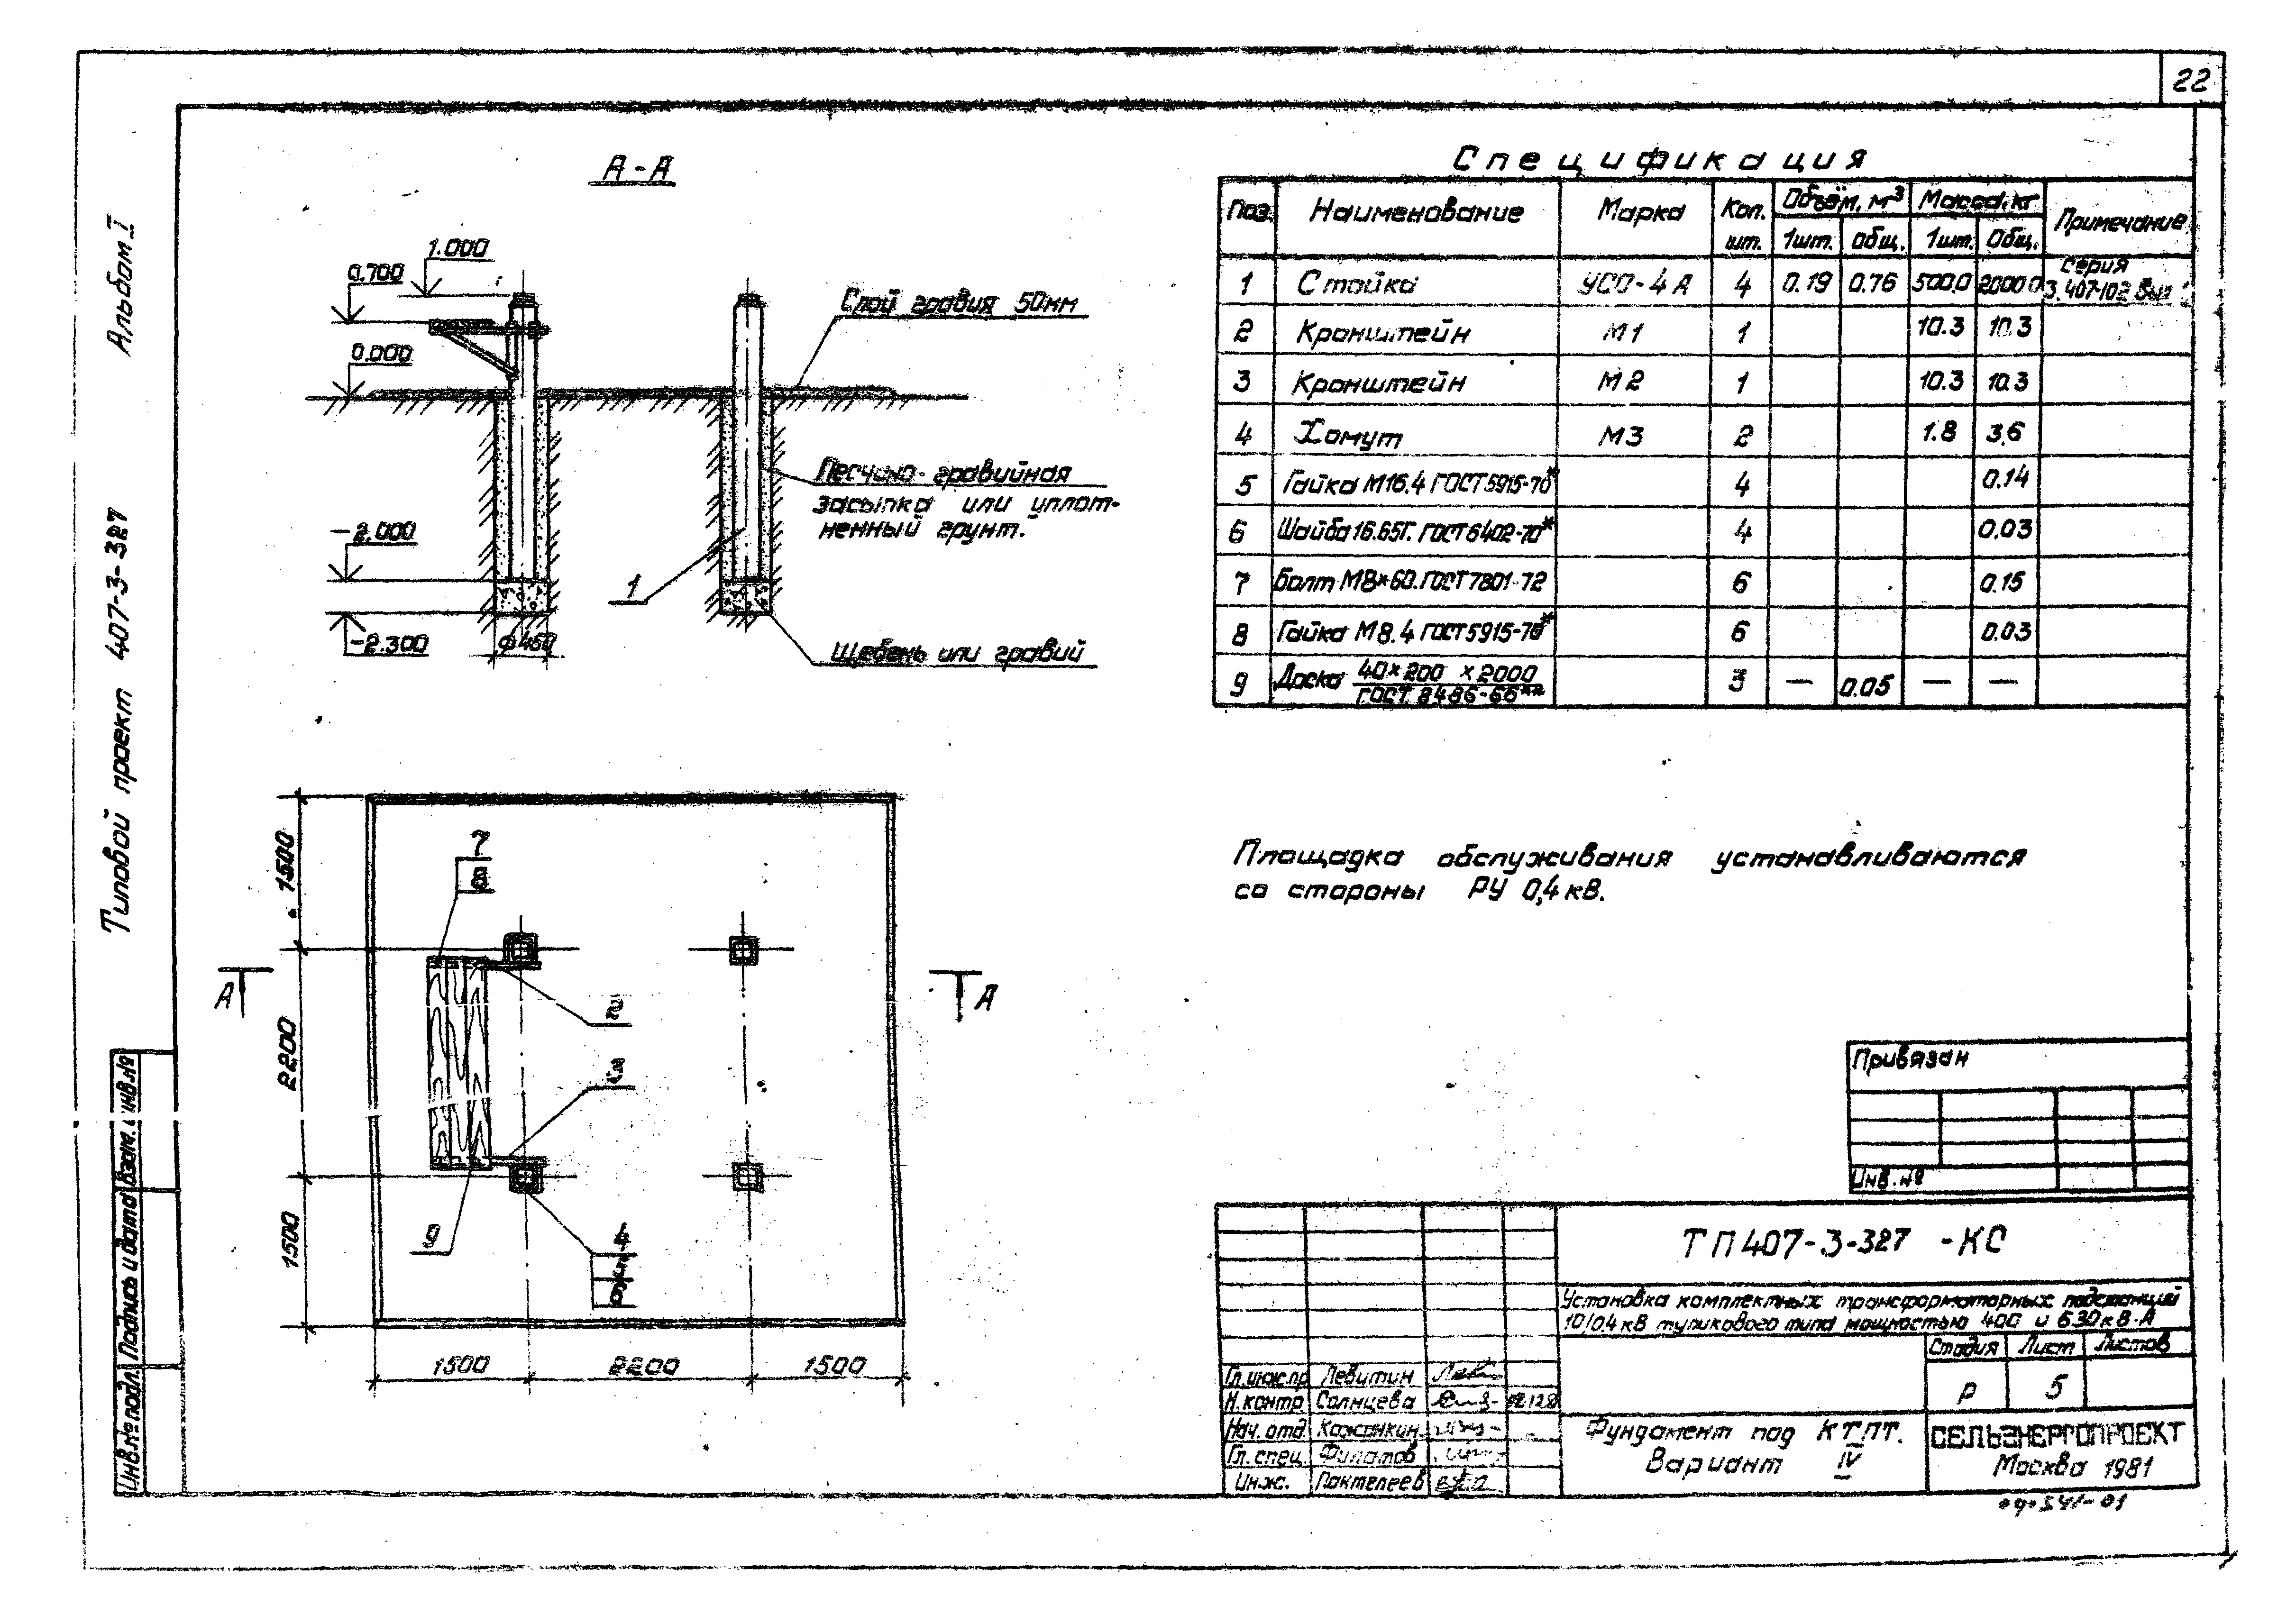 22
Альбом I
Типовой проект 407-3-327
А-А
1.000
0.700
0.000
-2.000
-2.300
Ф450
Слой гравия 50мм
Песчано-гравийная
засыпка или уплот-
ненный грунт.
1
Щебень или гравий
Спецификация
Поз. Наименование Марка Кол. шт. Объём, м³ Масса, кг Примечание
1шт. Общ. 1шт. Общ.
1 Стойка УСО-4А 4 0.19 0.76 500.0 2000.0 Серия 3.407-102
2 Кронштейн М1 1 10.3 10.3
3 Кронштейн М2 1 10.3 10.3
4 Хомут М3 2 1.8 3.6
5 Гайка М16.4 ГОСТ 5915-70* 4 0.14
6 Шайба 16.65Г. ГОСТ 6402-70* 4 0.03
7 Болт М8×60. ГОСТ 7801-72 6 0.15
8 Гайка М8.4 ГОСТ 5915-70* 6 0.03
9 Доска 40×200×2000 ГОСТ 8486-66** 3 — 0.05 — —
Площадка обслуживания устанавливаются
со стороны РУ 0,4 кВ.
7
8
2
3
9
4
5
6
А
А
1500
2200
1500
1500
2200
1500
Привязан
Инв. №
Инв.№ подл. Подпись и дата Взам. инв.№
ТП407-3-327 -КС
Установка комплектных трансформаторных подстанций
10/0.4 кВ тупикового типа мощностью 400 и 630 кВ·А
Стадия Лист Листов
Р 5
Гл.инж.пр Левитин
Н.контр. Солнцева
Нач.отд.
Гл.спец. Филатов
Инж. Пактелеев
Фундамент под КТПТ.
Вариант IV
СЕЛЬЭНЕРГОПРОЕКТ
Москва 1981